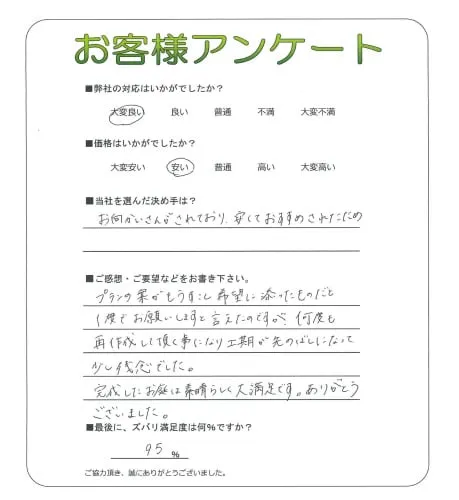 お客様アンケート
■弊社の対応はいかがでしたか？
大変良い 良い 普通 不満 大変不満
■価格はいかがでしたか？
大変安い 安い 普通 高い 大変高い
■当社を選んだ決め手は？
お向かいさんがされており、安くておすすめされたため
■ご感想・ご要望などをお書き下さい。
プランの案がもうすこし希望に添ったものだと
1度でお願いしますと言えたのですが、何度も
再作成して頂く事になり工期が先のばしになって
少し残念でした。
完成したお庭は素晴らしく大満足です。ありがとう
ございました。
■最後に、ズバリ満足度は何%ですか？
95 %
ご協力頂き、誠にありがとうございました。